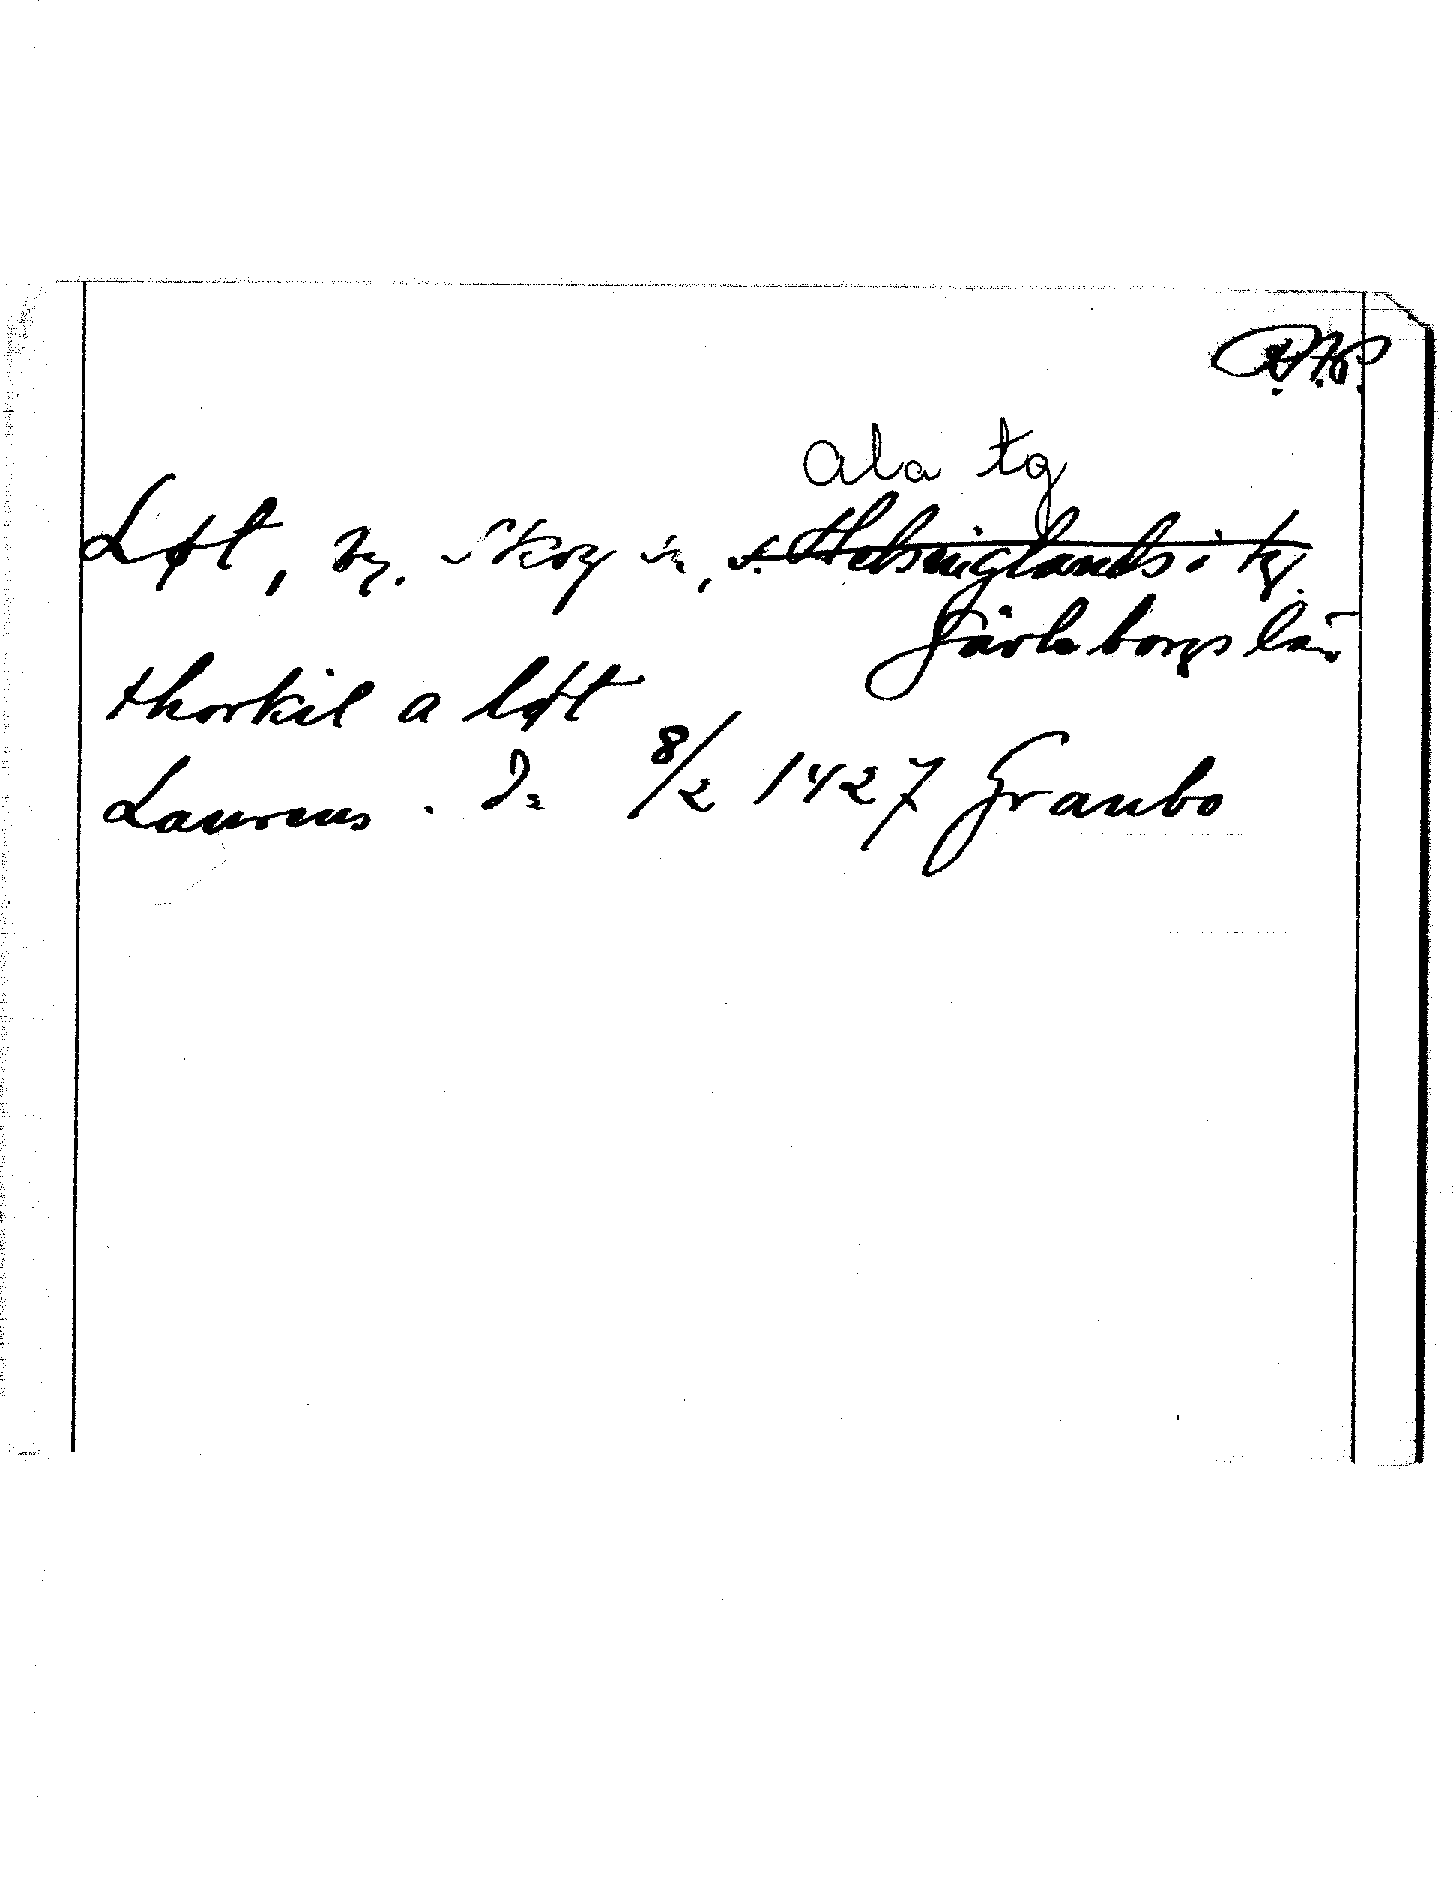 R.A.P.
Ala tg
Løt, by. Skog sn, s. Helsinglands tg.
Gävleborgs län
thorkil a løt
Laurens . Ja 8/2 1427 Granbo